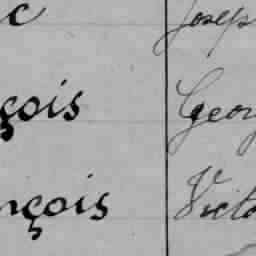 c Josep
çois Geor
nçois Victo